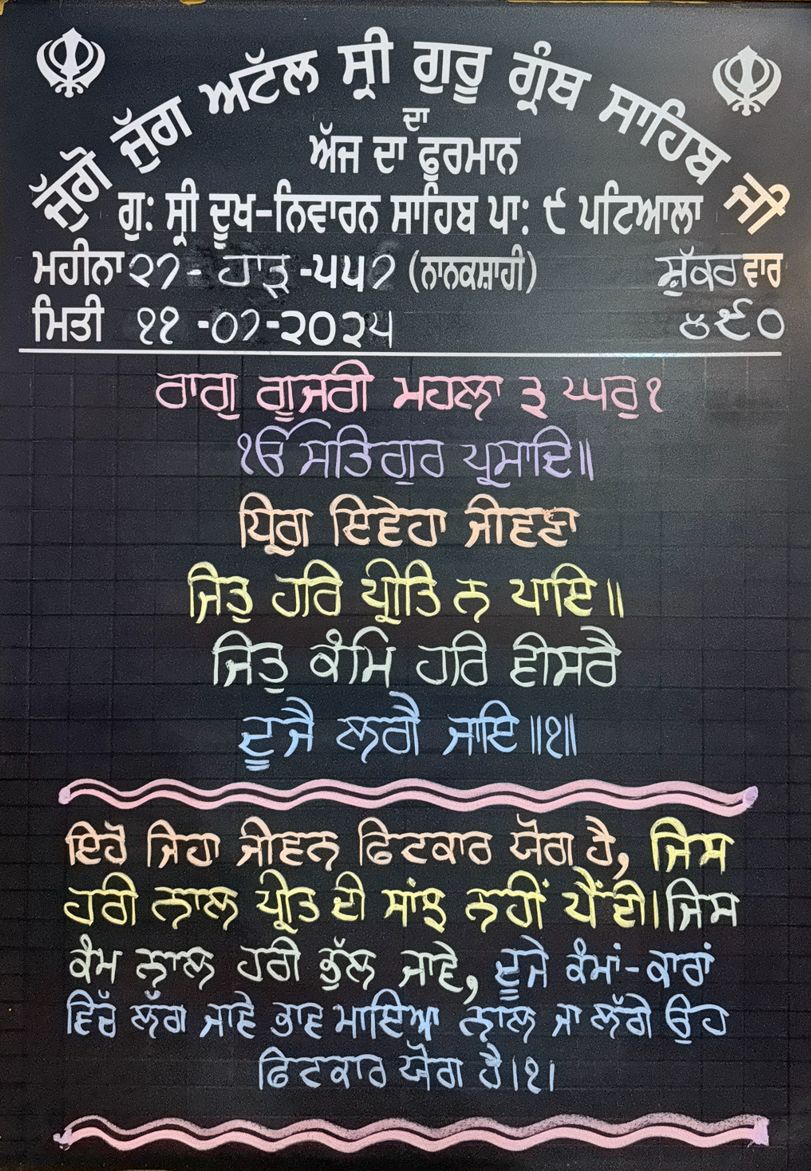 ਜੁੱਗੋ ਜੁੱਗ ਅਟੱਲ ਸ੍ਰੀ ਗੁਰੂ ਗ੍ਰੰਥ ਸਾਹਿਬ ਜੀ
ਦਾ
ਅੱਜ ਦਾ ਫੁਰਮਾਨ
ਗੁ: ਸ੍ਰੀ ਦੂਖ-ਨਿਵਾਰਨ ਸਾਹਿਬ ਪਾ: ੯ ਪਟਿਆਲਾ
ਮਹੀਨਾ ੨੭ - ਹਾੜ੍ਹ -੫੫੭ (ਨਾਨਕਸ਼ਾਹੀ) ਸ਼ੁੱਕਰਵਾਰ
ਮਿਤੀ ੧੧ -੦੭-੨੦੨੫ ੪੯੦
ਰਾਗੁ ਗੂਜਰੀ ਮਹਲਾ ੩ ਘਰੁ ੧
ੴ ਸਤਿਗੁਰ ਪ੍ਰਸਾਦਿ॥
ਧ੍ਰਿਗੁ ਇਵੇਹਾ ਜੀਵਣਾ
ਜਿਤੁ ਹਰਿ ਪ੍ਰੀਤਿ ਨ ਪਾਇ॥
ਜਿਤੁ ਕੰਮਿ ਹਰਿ ਵੀਸਰੈ
ਦੂਜੈ ਲਗੈ ਜਾਇ॥੧॥
ਇਹੋ ਜਿਹਾ ਜੀਵਨ ਫਿਟਕਾਰ ਯੋਗ ਹੈ, ਜਿਸ
ਹਰੀ ਨਾਲ ਪ੍ਰੀਤ ਦੀ ਸਾਂਝ ਨਹੀਂ ਪੈਂਦੀ। ਜਿਸ
ਕੰਮ ਨਾਲ ਹਰੀ ਭੁੱਲ ਜਾਵੇ, ਦੂਜੇ ਕੰਮਾਂ-ਕਾਰਾਂ
ਵਿੱਚ ਲੱਗ ਜਾਵੇ ਭਾਵ ਮਾਇਆ ਨਾਲ ਜਾ ਲੱਗੇ ਉਹ
ਫਿਟਕਾਰ ਯੋਗ ਹੈ।੧।